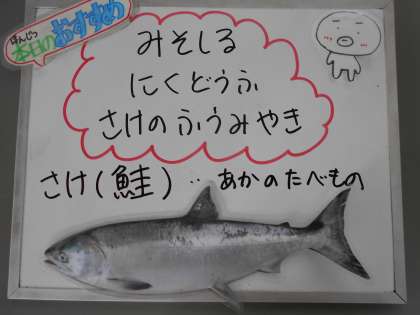 ほんじつ
本日のおすすめ
みそしる
にくどうふ
さけのふうみやき
さけ(鮭)…あかのたべもの